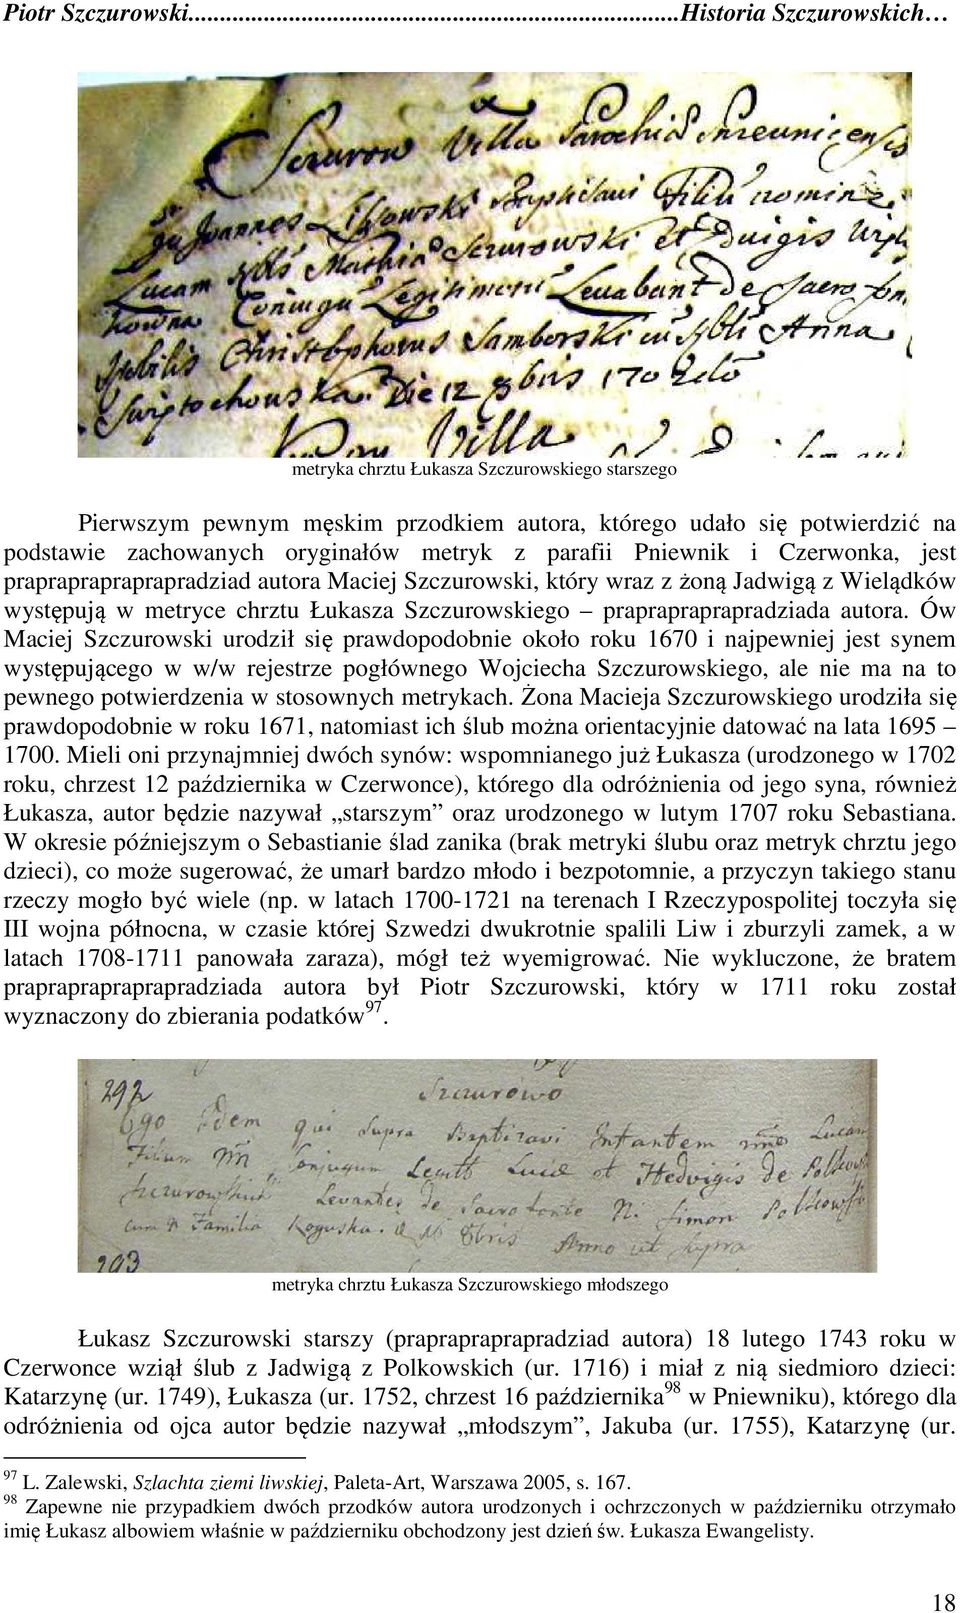 Piotr Szczurowski...............................................................Historia Szczurowskich…
Szczurow Villa Parochia Pnieunicensis
Joannes Lipowski Baptisavi Filiū nomine
Lucam Mathia Szczurowski et
Coniugū Legitimorū Levabant de Sacro fon
Nobilis Christophorus Samborski cū Nbli Anna
Swiętochowska. Die 12 8bris 1702
Villa
metryka chrztu Łukasza Szczurowskiego starszego
Pierwszym pewnym męskim przodkiem autora, którego udało się potwierdzić na
podstawie zachowanych oryginałów metryk z parafii Pniewnik i Czerwonka, jest
praprapraprapraprapradziad autora Maciej Szczurowski, który wraz z żoną Jadwigą z Wielądków
występują w metryce chrztu Łukasza Szczurowskiego – praprapraprapradziada autora. Ów
Maciej Szczurowski urodził się prawdopodobnie około roku 1670 i najpewniej jest synem
występującego w w/w rejestrze pogłównego Wojciecha Szczurowskiego, ale nie ma na to
pewnego potwierdzenia w stosownych metrykach. Żona Macieja Szczurowskiego urodziła się
prawdopodobnie w roku 1671, natomiast ich ślub można orientacyjnie datować na lata 1695 –
1700. Mieli oni przynajmniej dwóch synów: wspomnianego już Łukasza (urodzonego w 1702
roku, chrzest 12 października w Czerwonce), którego dla odróżnienia od jego syna, również
Łukasza, autor będzie nazywał „starszym” oraz urodzonego w lutym 1707 roku Sebastiana.
W okresie późniejszym o Sebastianie ślad zanika (brak metryki ślubu oraz metryk chrztu jego
dzieci), co może sugerować, że umarł bardzo młodo i bezpotomnie, a przyczyn takiego stanu
rzeczy mogło być wiele (np. w latach 1700-1721 na terenach I Rzeczypospolitej toczyła się
III wojna północna, w czasie której Szwedzi dwukrotnie spalili Liw i zburzyli zamek, a w
latach 1708-1711 panowała zaraza), mógł też wyemigrować. Nie wykluczone, że bratem
praprapraprapraprapradziada autora był Piotr Szczurowski, który w 1711 roku został
wyznaczony do zbierania podatków97.
292 Szczurowo
Ego Idem qui supra Baptizavi Infantem Lucam
Filium Conjugum et Hedvigis de Polkow
Szczurowskich Levantes de Sacro fonte Simon Polkowski
cum Familia Anno ut supra
293
metryka chrztu Łukasza Szczurowskiego młodszego
Łukasz Szczurowski starszy (praprapraprapradziad autora) 18 lutego 1743 roku w
Czerwonce wziął ślub z Jadwigą z Polkowskich (ur. 1716) i miał z nią siedmioro dzieci:
Katarzynę (ur. 1749), Łukasza (ur. 1752, chrzest 16 października98 w Pniewniku), którego dla
odróżnienia od ojca autor będzie nazywał „młodszym”, Jakuba (ur. 1755), Katarzynę (ur.
97 L. Zalewski, Szlachta ziemi liwskiej, Paleta-Art, Warszawa 2005, s. 167.
98 Zapewne nie przypadkiem dwóch przodków autora urodzonych i ochrzczonych w październiku otrzymało
imię Łukasz albowiem właśnie w październiku obchodzony jest dzień św. Łukasza Ewangelisty.
18